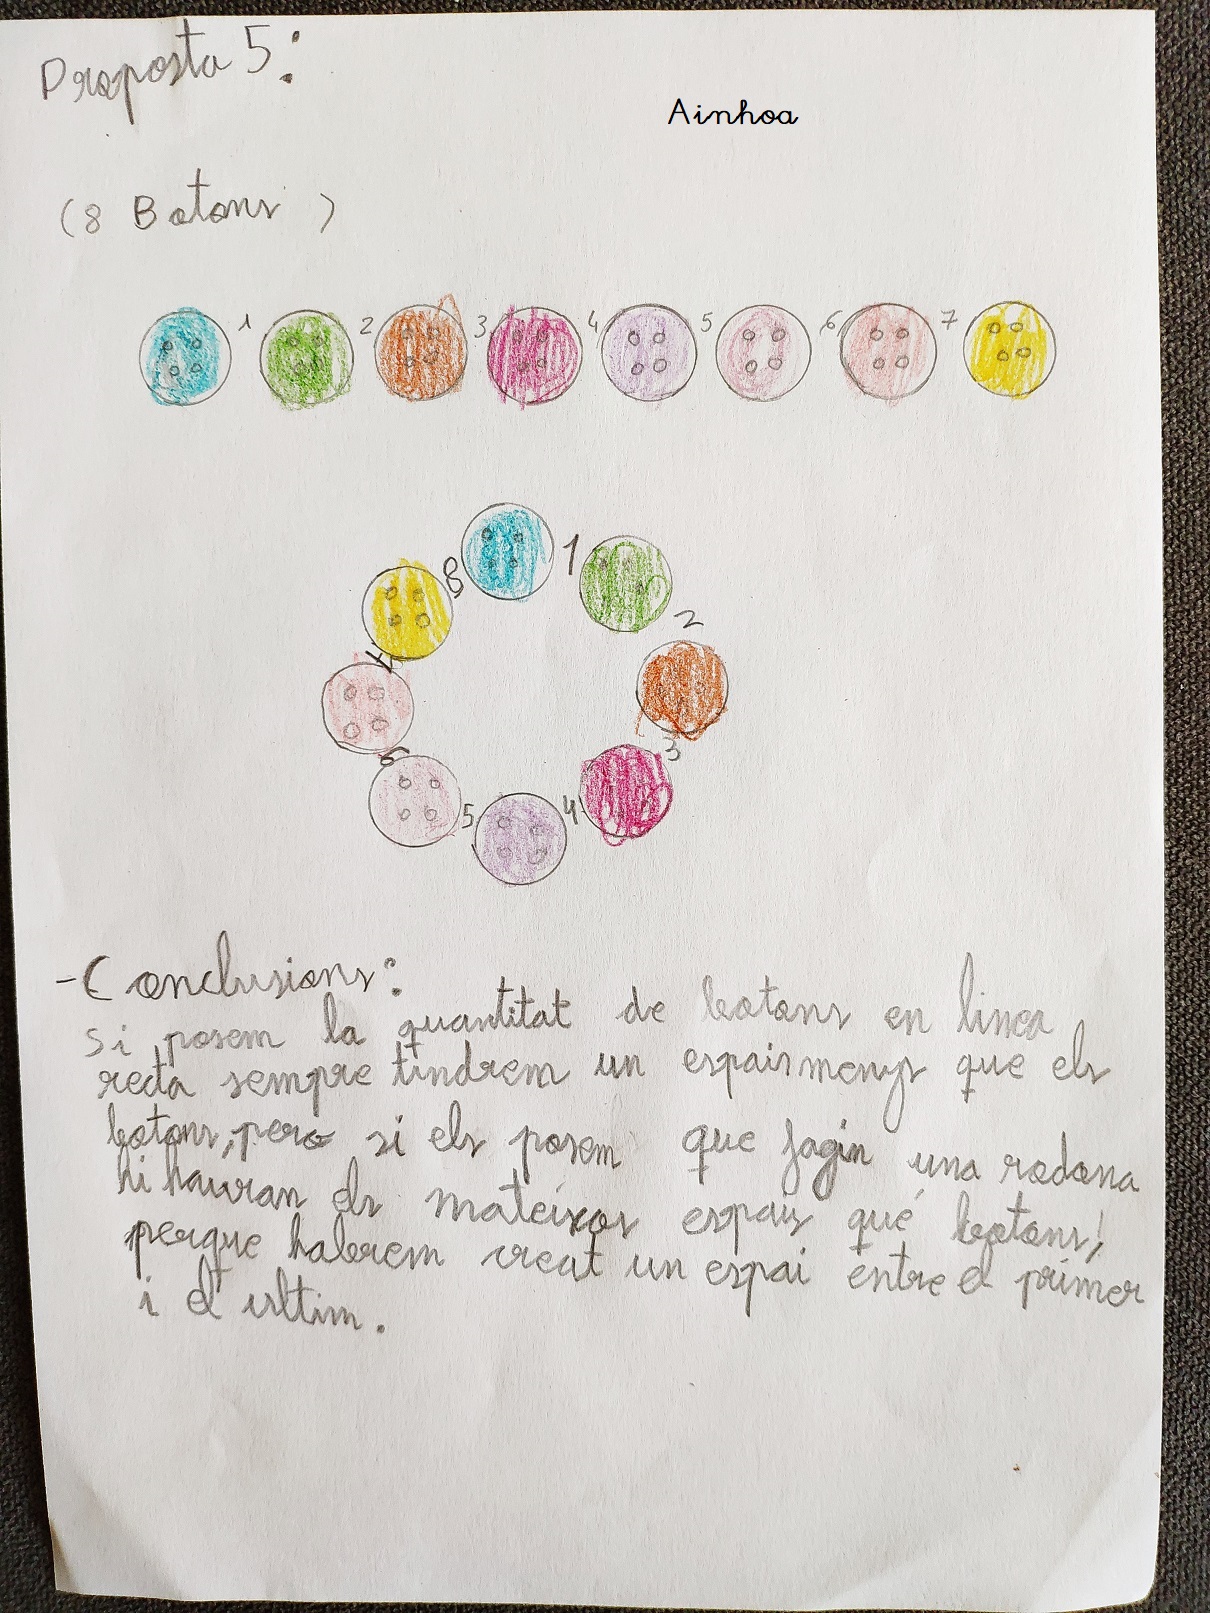 Proposta 5:
Ainhoa
(8 Botons)
1 2 3 4 5 6 7
8 1
2
7
6 3
5 4
-Conclusions:
Si posem la quantitat de botons en linea
recta sempre tindrem un espais menys que els
botons, pero si els posem que fagin una rodona
hi hauran els mateixos espais qué botons,
perque habrem creat un espai entre el primer
i el ultim.